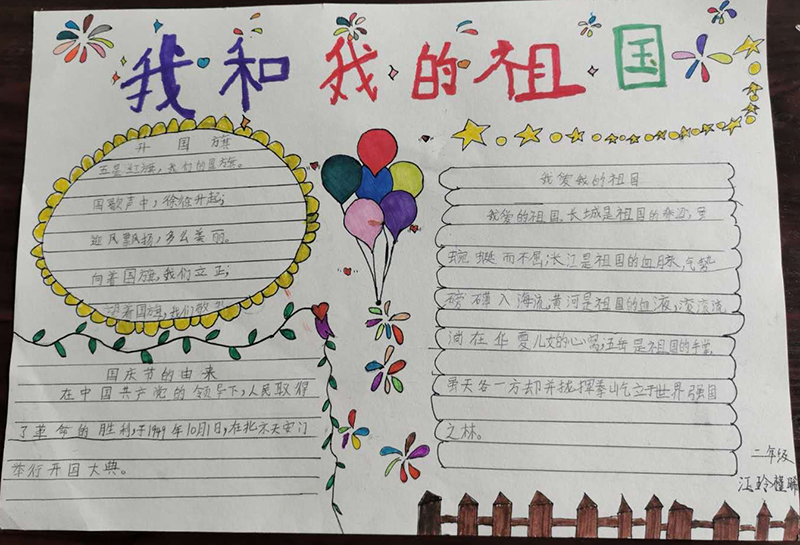 我和我的祖国
升国旗
五星红旗，我们的国旗。
国歌声中，徐徐升起；
迎风飘扬，多么美丽。
向着国旗，我们立正；
望着国旗，我们敬礼
国庆节的由来
在中国共产党的领导下，人民取得
了革命的胜利，于1949年10月1日，在北京天安门
举行开国大典。
我爱我的祖国
我爱的祖国，长城是祖国的脊梁，
蜿蜒而不屈；长江是祖国的血脉，气势
磅礴入海流，黄河是祖国的血液，滚滚流
淌在华夏儿女的心窝；五岳是祖国的手掌，
虽天各一方却并拢撑起屹立于世界强国
之林。
二年级
江玲